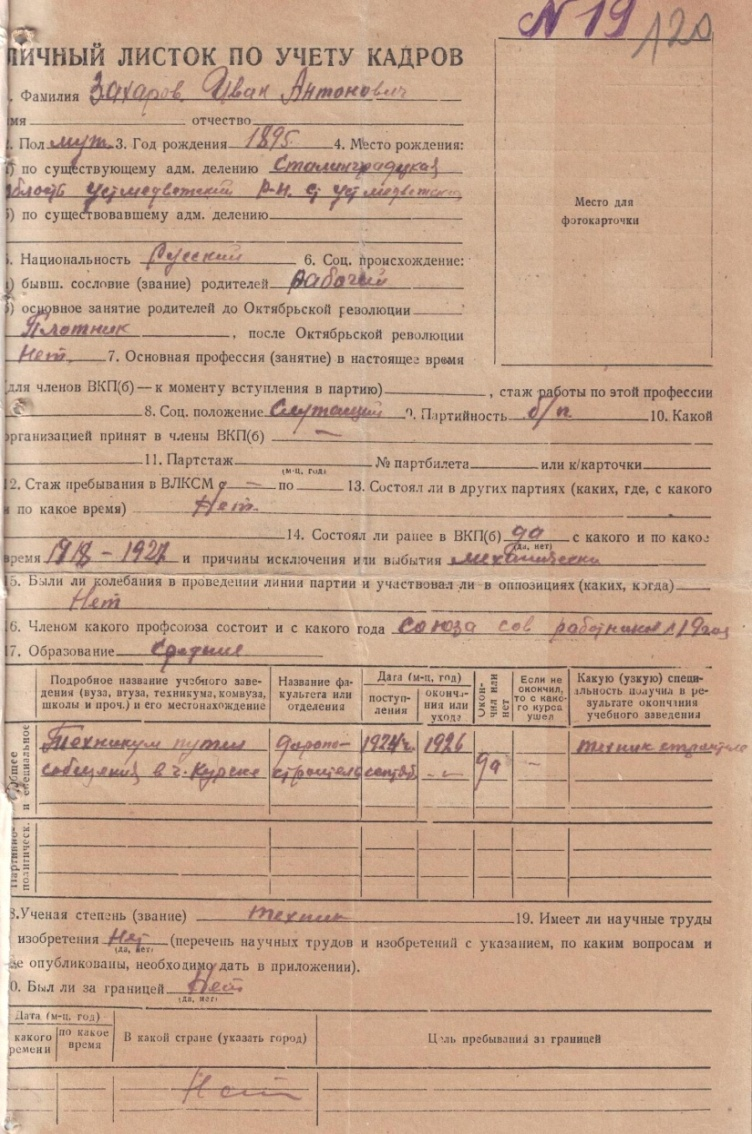 N 19 120
ЛИЧНЫЙ ЛИСТОК ПО УЧЕТУ КАДРОВ
1. Фамилия Захаров Иван Антонович
мя отчество
2. Пол муж. 3. Год рождения 1895 4. Место рождения:
) по существующему адм. делению Сталинградская
область устмедветский р-н. ст устмедветская
) по существовавшему адм. делению
Место для
фотокарточки
5. Национальность Русский 6. Соц. происхождение:
) бывш. сословие (звание) родителей рабочий
) основное занятие родителей до Октябрьской революции
Плотник, после Октябрьской революции
Нет. 7. Основная профессия (занятие) в настоящее время
(для членов ВКП(б) — к моменту вступления в партию), стаж работы по этой профессии
8. Соц. положение Служащий 9. Партийность б/п 10. Какой
организацией принят в члены ВКП(б) —
11. Партстаж (м-ц, год) № партбилета или к/карточки
12. Стаж пребывания в ВЛКСМ с — по 13. Состоял ли в других партиях (каких, где, с какого
и по какое время) Нет.
14. Состоял ли ранее в ВКП(б) да (да, нет) с какого и по какое
время 1918 – 1921 и причины исключения или выбытия механически
15. Были ли колебания в проведении линии партии и участвовал ли в оппозициях (каких, когда)
Нет
16. Членом какого профсоюза состоит и с какого года союза сов работников
17. Образование Среднее
Общее и специальное
Партийно-политическ.
Подробное название учебного заведения (вуза, втуза, техникума, комвуза, школы и проч.) и его местонахождение
Название факультета или отделения
Дата (м-ц, год)
поступления
окончания или ухода
Окончил или нет
Если не окончил, то с какого курса ушел
Какую (узкую) специальность получил в результате окончания учебного заведения
Техникум путей дорого- 1924 г. 1926 техник
сообщения в г. Курске строитель сентяб. — да —
18. Ученая степень (звание) техник 19. Имеет ли научные труды
изобретения Нет (да, нет) (перечень научных трудов и изобретений с указанием, по каким вопросам и
де опубликованы, необходимо дать в приложении).
20. Был ли за границей Нет (да, нет)
Дата (м-ц, год)
какого времени
по какое время
В какой стране (указать город)
Цель пребывания за границей
Нет